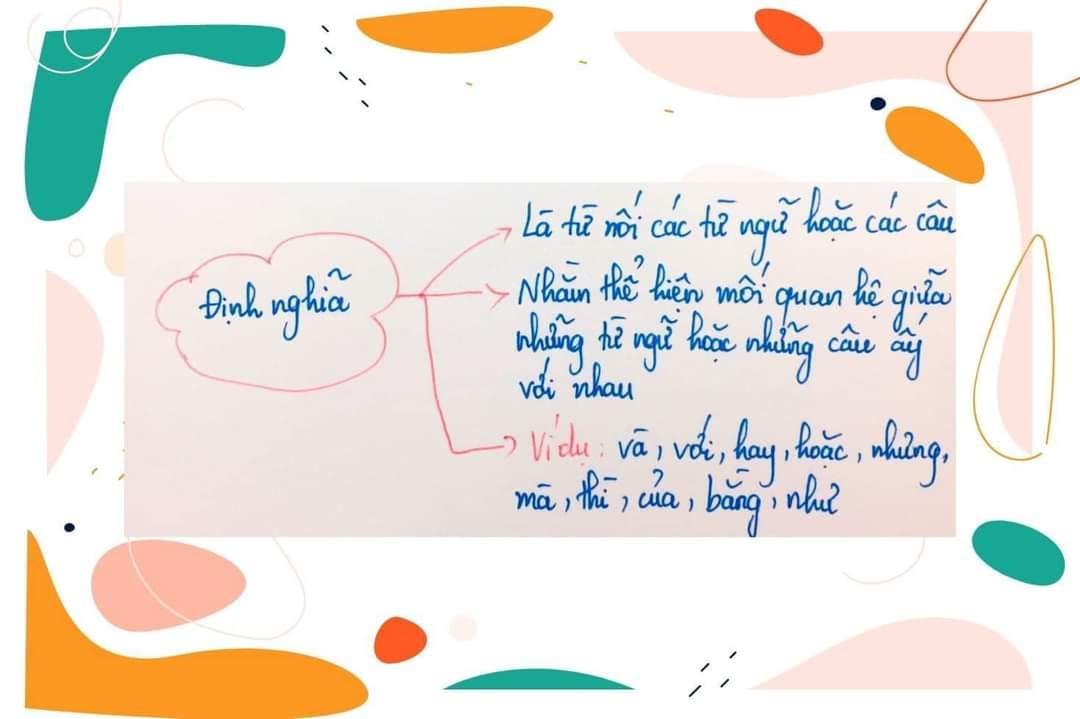 Định nghĩa
Là từ nối các từ ngữ hoặc các câu
Nhằm thể hiện mối quan hệ giữa
những từ ngữ hoặc những câu ấy
với nhau
Ví dụ: và, với, hay, hoặc, nhưng,
mà, thì, của, bằng, như